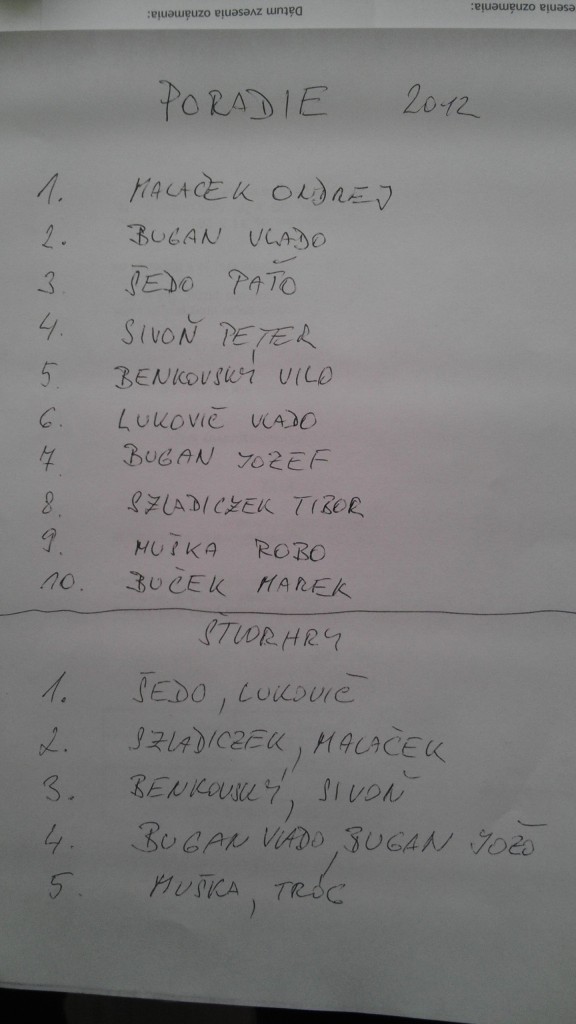 esenia oznámenia:
Dátum zvesenia oznámenia:
PORADIE 2012
1. MALAČEK ONDREJ
2. BUGAN VLADO
3. ŠEDO PAŤO
4. SIVOŇ PETER
5. BENKOVSKÝ VILO
6. LUKOVIČ VLADO
7. BUGAN JOZEF
8. SZLADICZEK TIBOR
9. MUŠKA ROBO
10. BUČEK MAREK
ŠTVORHRY
1. ŠEDO, LUKOVIČ
2. SZLADICZEK, MALAČEK
3. BENKOVSKÝ, SIVOŇ
4. BUGAN VLADO, BUGAN JOŽO
5. MUŠKA, TRÓG